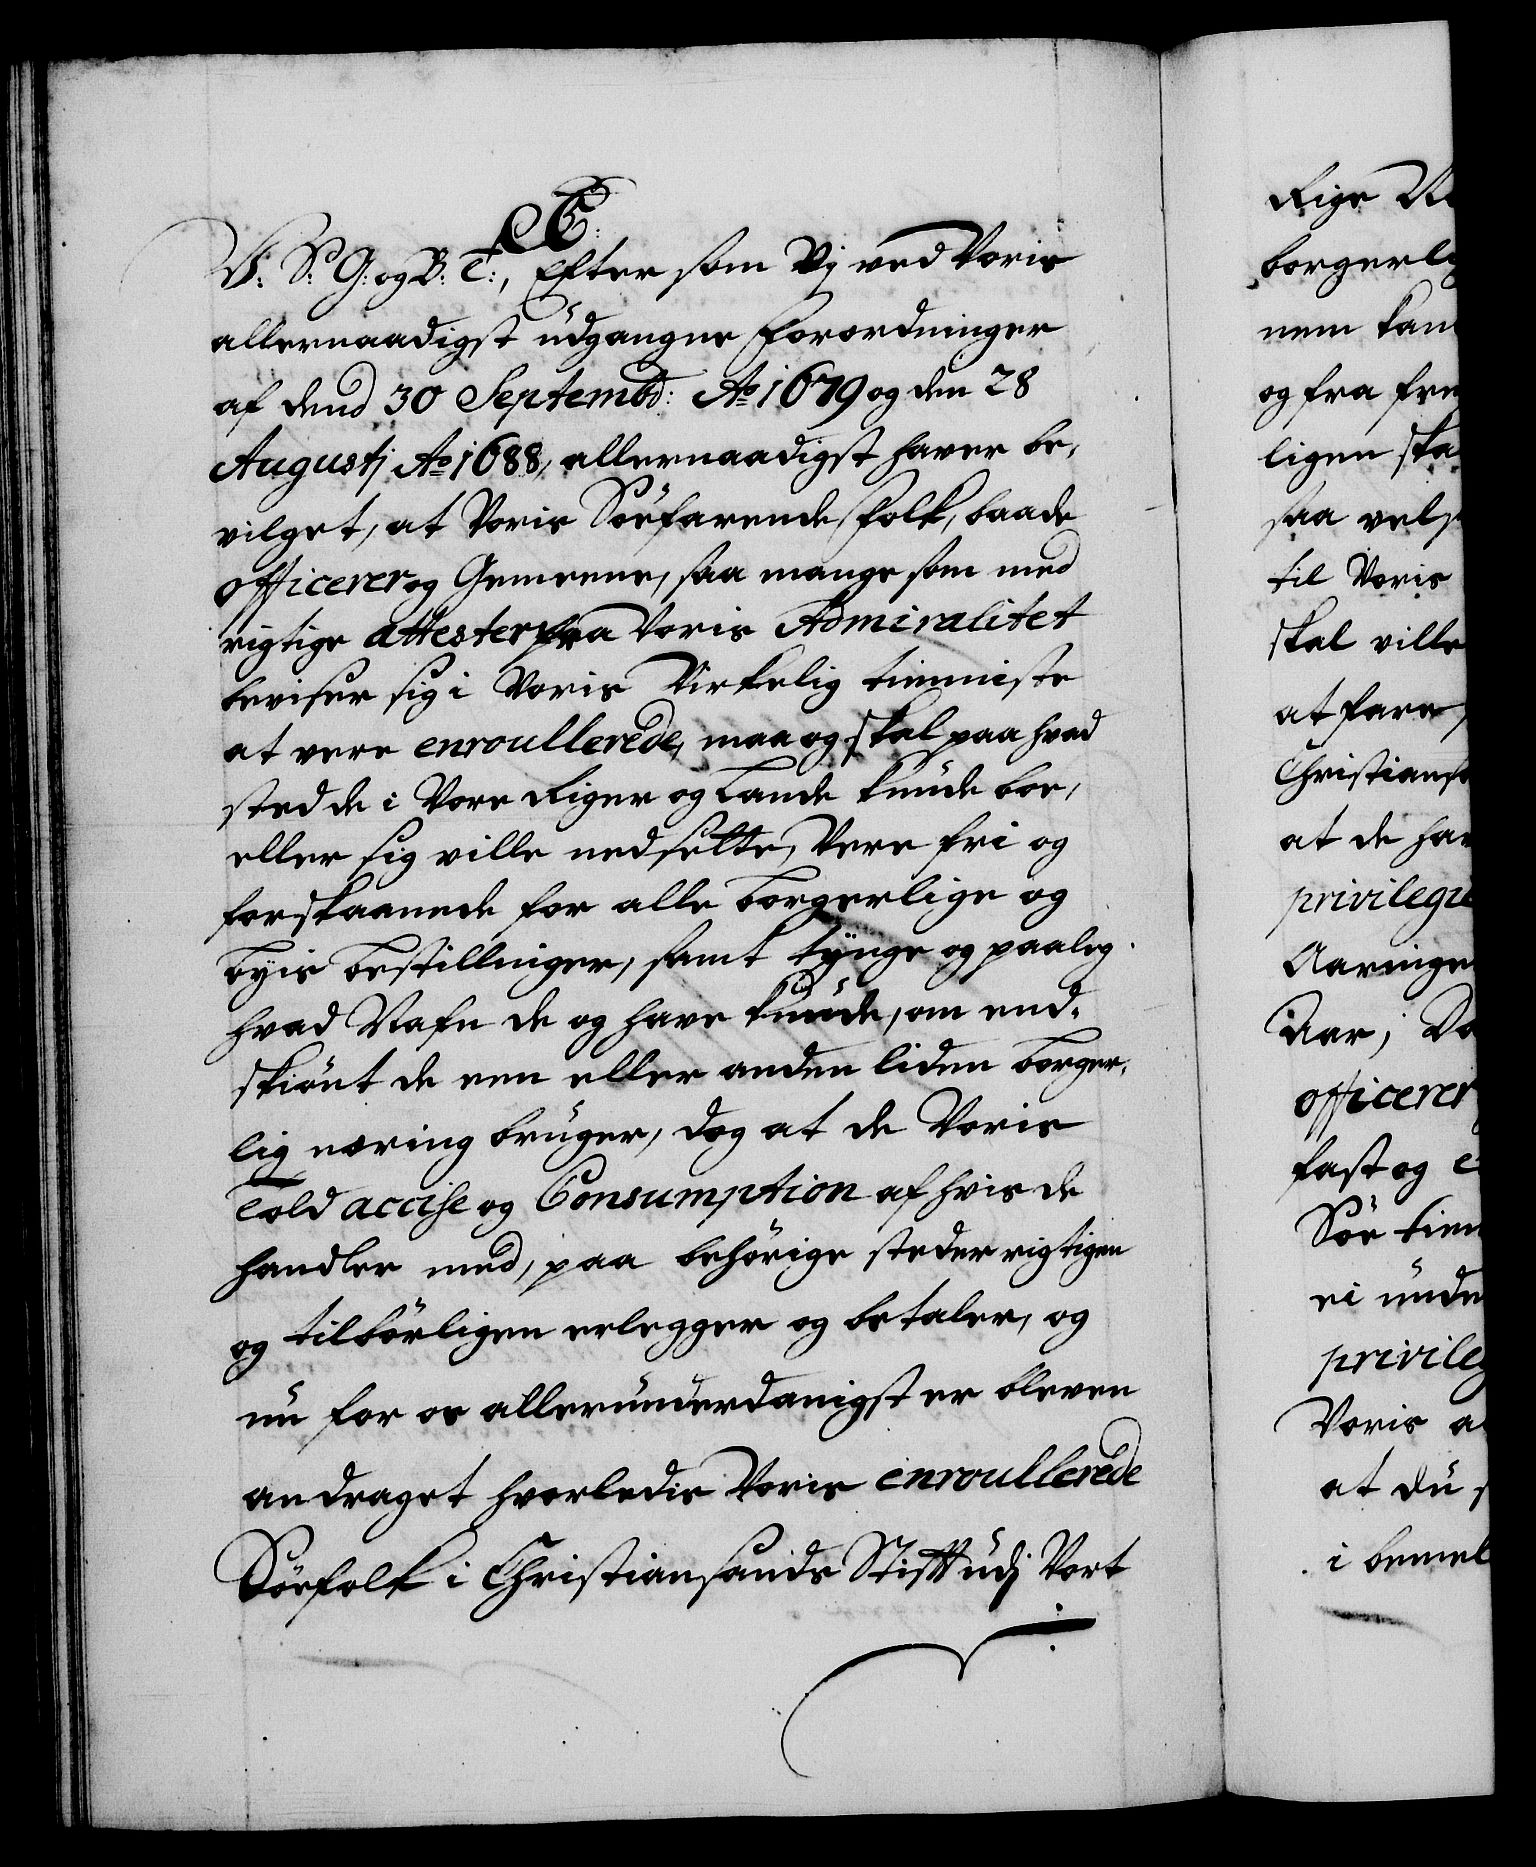 C5.
V: S: G: og B: T:, Efter som Vj ved Voris
allernaadigst üdgangne Forordninger
af dend 30 Septembd: Ao 1679 og den 28
Augustj Ao 1688, allernaadigst haver be-
vilget, at Voris Söefarende Folk, baade
officerer og Gemeene, saa mange som med
rigtige attester fra Voris Admiralitet
beviser sig i Voris Virkelig tienniste
at vere enroullerede, maa og skal paa hvad
sted de i Vore Riger og Lande künde boe,
eller sig ville nedsette, Vere fri og
forskaanede for alle borgerlige og
byis bestillinger, samt tÿnge og paaleg
hvad Nafn de og have künde, om end-
skiönt de een eller anden liden borger-
lig næring brüger, dog at de Voris
Told accise og Consumption af hvis de
handler med, paa behörige steder rigtigen
og tilbörligen erlegger og betaler, og
nü for os alleründerdanigst er bleven
andraget hvorledis Voris enroullerede
Söefolk i Christiansands Stift üdj Vort
Rige
borgerl
nem kan
og fra fre
ligen ska
saa vel
til Voris
skal ville
at fare,
Christians
at de ha
privilegie
Aaringe
Aar, Do
officerer
fast og e
Söe tien
ei ünde
privileg
Voris a
at dü
i bemel